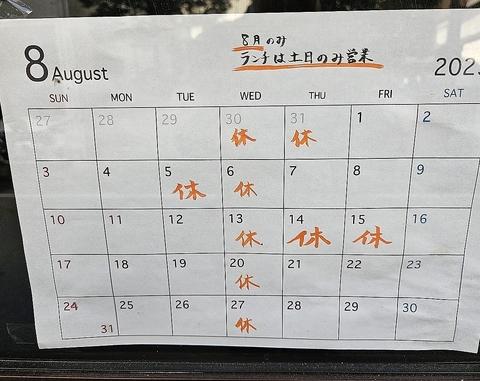 8月のみ
ランチは土日のみ営業
8 August
SUN MON TUE WED THU FRI SAT
27 28 29 30 31 1 2
休 休
3 4 5 6 7 8 9
休 休
10 11 12 13 14 15 16
休 休 休
17 18 19 20 21 22 23
休
24 25 26 27 28 29 30
31 休